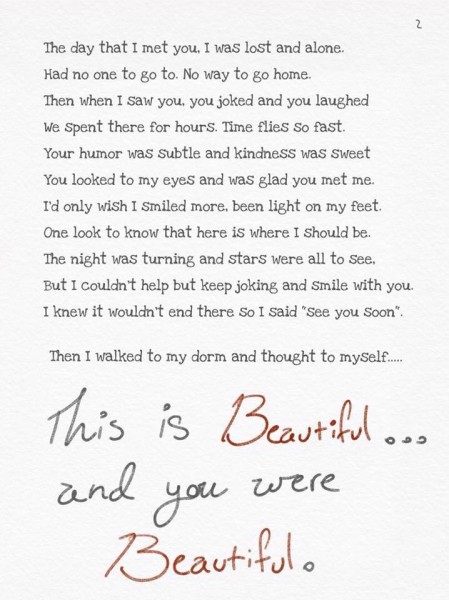 2
The day that I met you, I was lost and alone.
Had no one to go to. No way to go home.
Then when I saw you, you joked and you laughed
We spent there for hours. Time flies so fast.
Your humor was subtle and kindness was sweet
You looked to my eyes and was glad you met me.
I'd only wish I smiled more, been light on my feet.
One look to know that here is where I should be.
The night was turning and stars were all to see,
But I couldn't help but keep joking and smile with you.
I knew it wouldn't end there so I said "see you soon".
Then I walked to my dorm and thought to myself.....
This is Beautiful...
and you were
Beautiful.